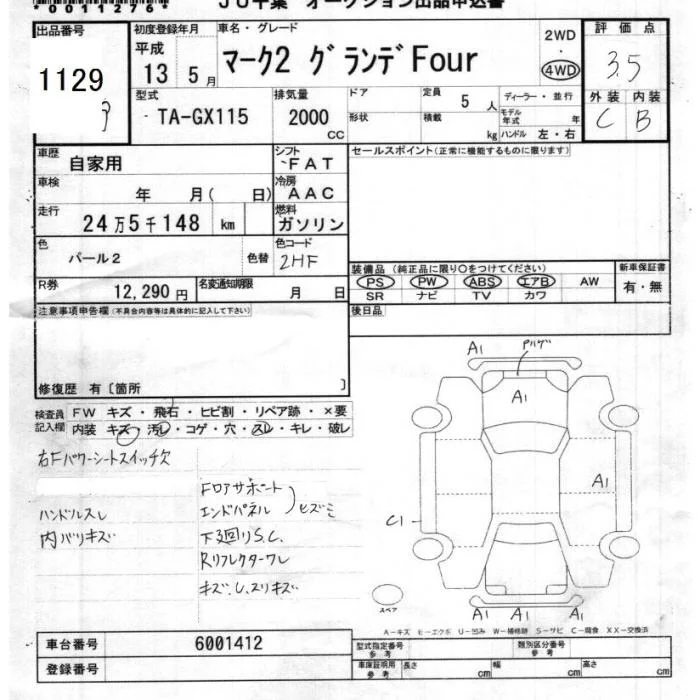 0011276
JU千葉 オークション出品申込書
出品番号 初度登録年月 車名・グレード 2WD・4WD 評価点
1129 平成13年5月 マーク2 グランデFour 3.5
型式 排気量 ドア 定員 5人 ディーラー・並行 外装 内装
TA-GX115 2000cc 形状 積載 kg モデル年式 年 ハンドル 左・右 C B
車歴 自家用 シフト FAT セールスポイント(正常に機能するものに限ります)
車検 年 月(日) 冷房 AAC
走行 24万5千148 km 燃料 ガソリン
色 パール2 色替 色コード 2HF
装備品(純正品に限り○をつけてください) 新車保証書
PS PW ABS エアB AW 有・無
SR ナビ TV カワ
R券 12,290円 名変通知期限 月 日
注意事項申告欄(不具合内容等は具体的に記入して下さい) 後日品
修復歴 有〔箇所 〕
検査員記入欄 FW キズ・飛石・ヒビ割・リペア跡・×要
内装 キズ・汚レ・コゲ・穴・スレ・キレ・破レ
右Fパワーシートスイッチ欠
FロアサポートエンドパネルヒズミB
ハンドルスレ
内バリキズ
下廻りS.C.
Rリフレクターワレ
キズ.U.スリキズ
A1
A1
A1
C1
A1 A1 A1
スペア
A-キズ E-エクボ U-凹み W-補修跡 S-サビ C-腐食 XX-交換済
車台番号 6001412 型式指定番号 参考 類別区分番号 参考
登録番号 車庫証明用 参考 長さ cm 幅 cm 高さ cm